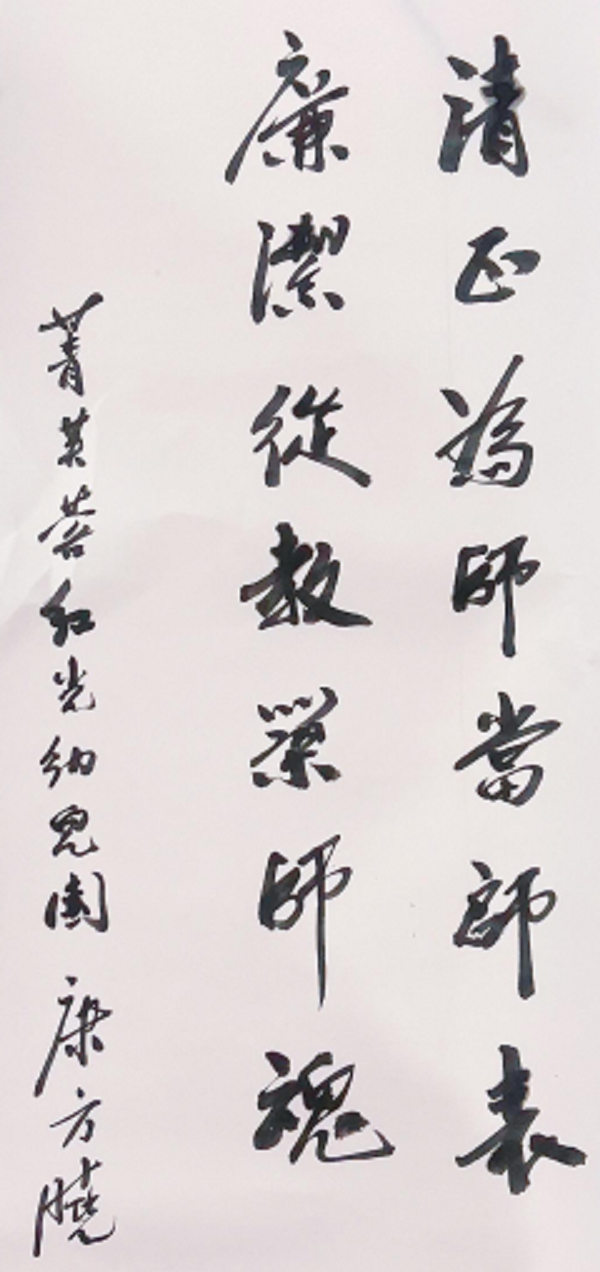 清正為師當師表
廉潔從教築師魂
菁英红光幼兒園 康方曉